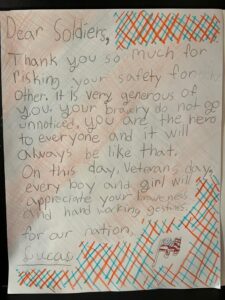 Dear Soldiers,
Thank you so much for
risking your safety for
Other. It is very generous of
you. your bravery do not go
unnoticed. you are the hero
to everyone and it will
always be like that.
On this day, Veterans day,
every boy and girl will
Appreciate your braveness
and hard working gestures
for our nation.